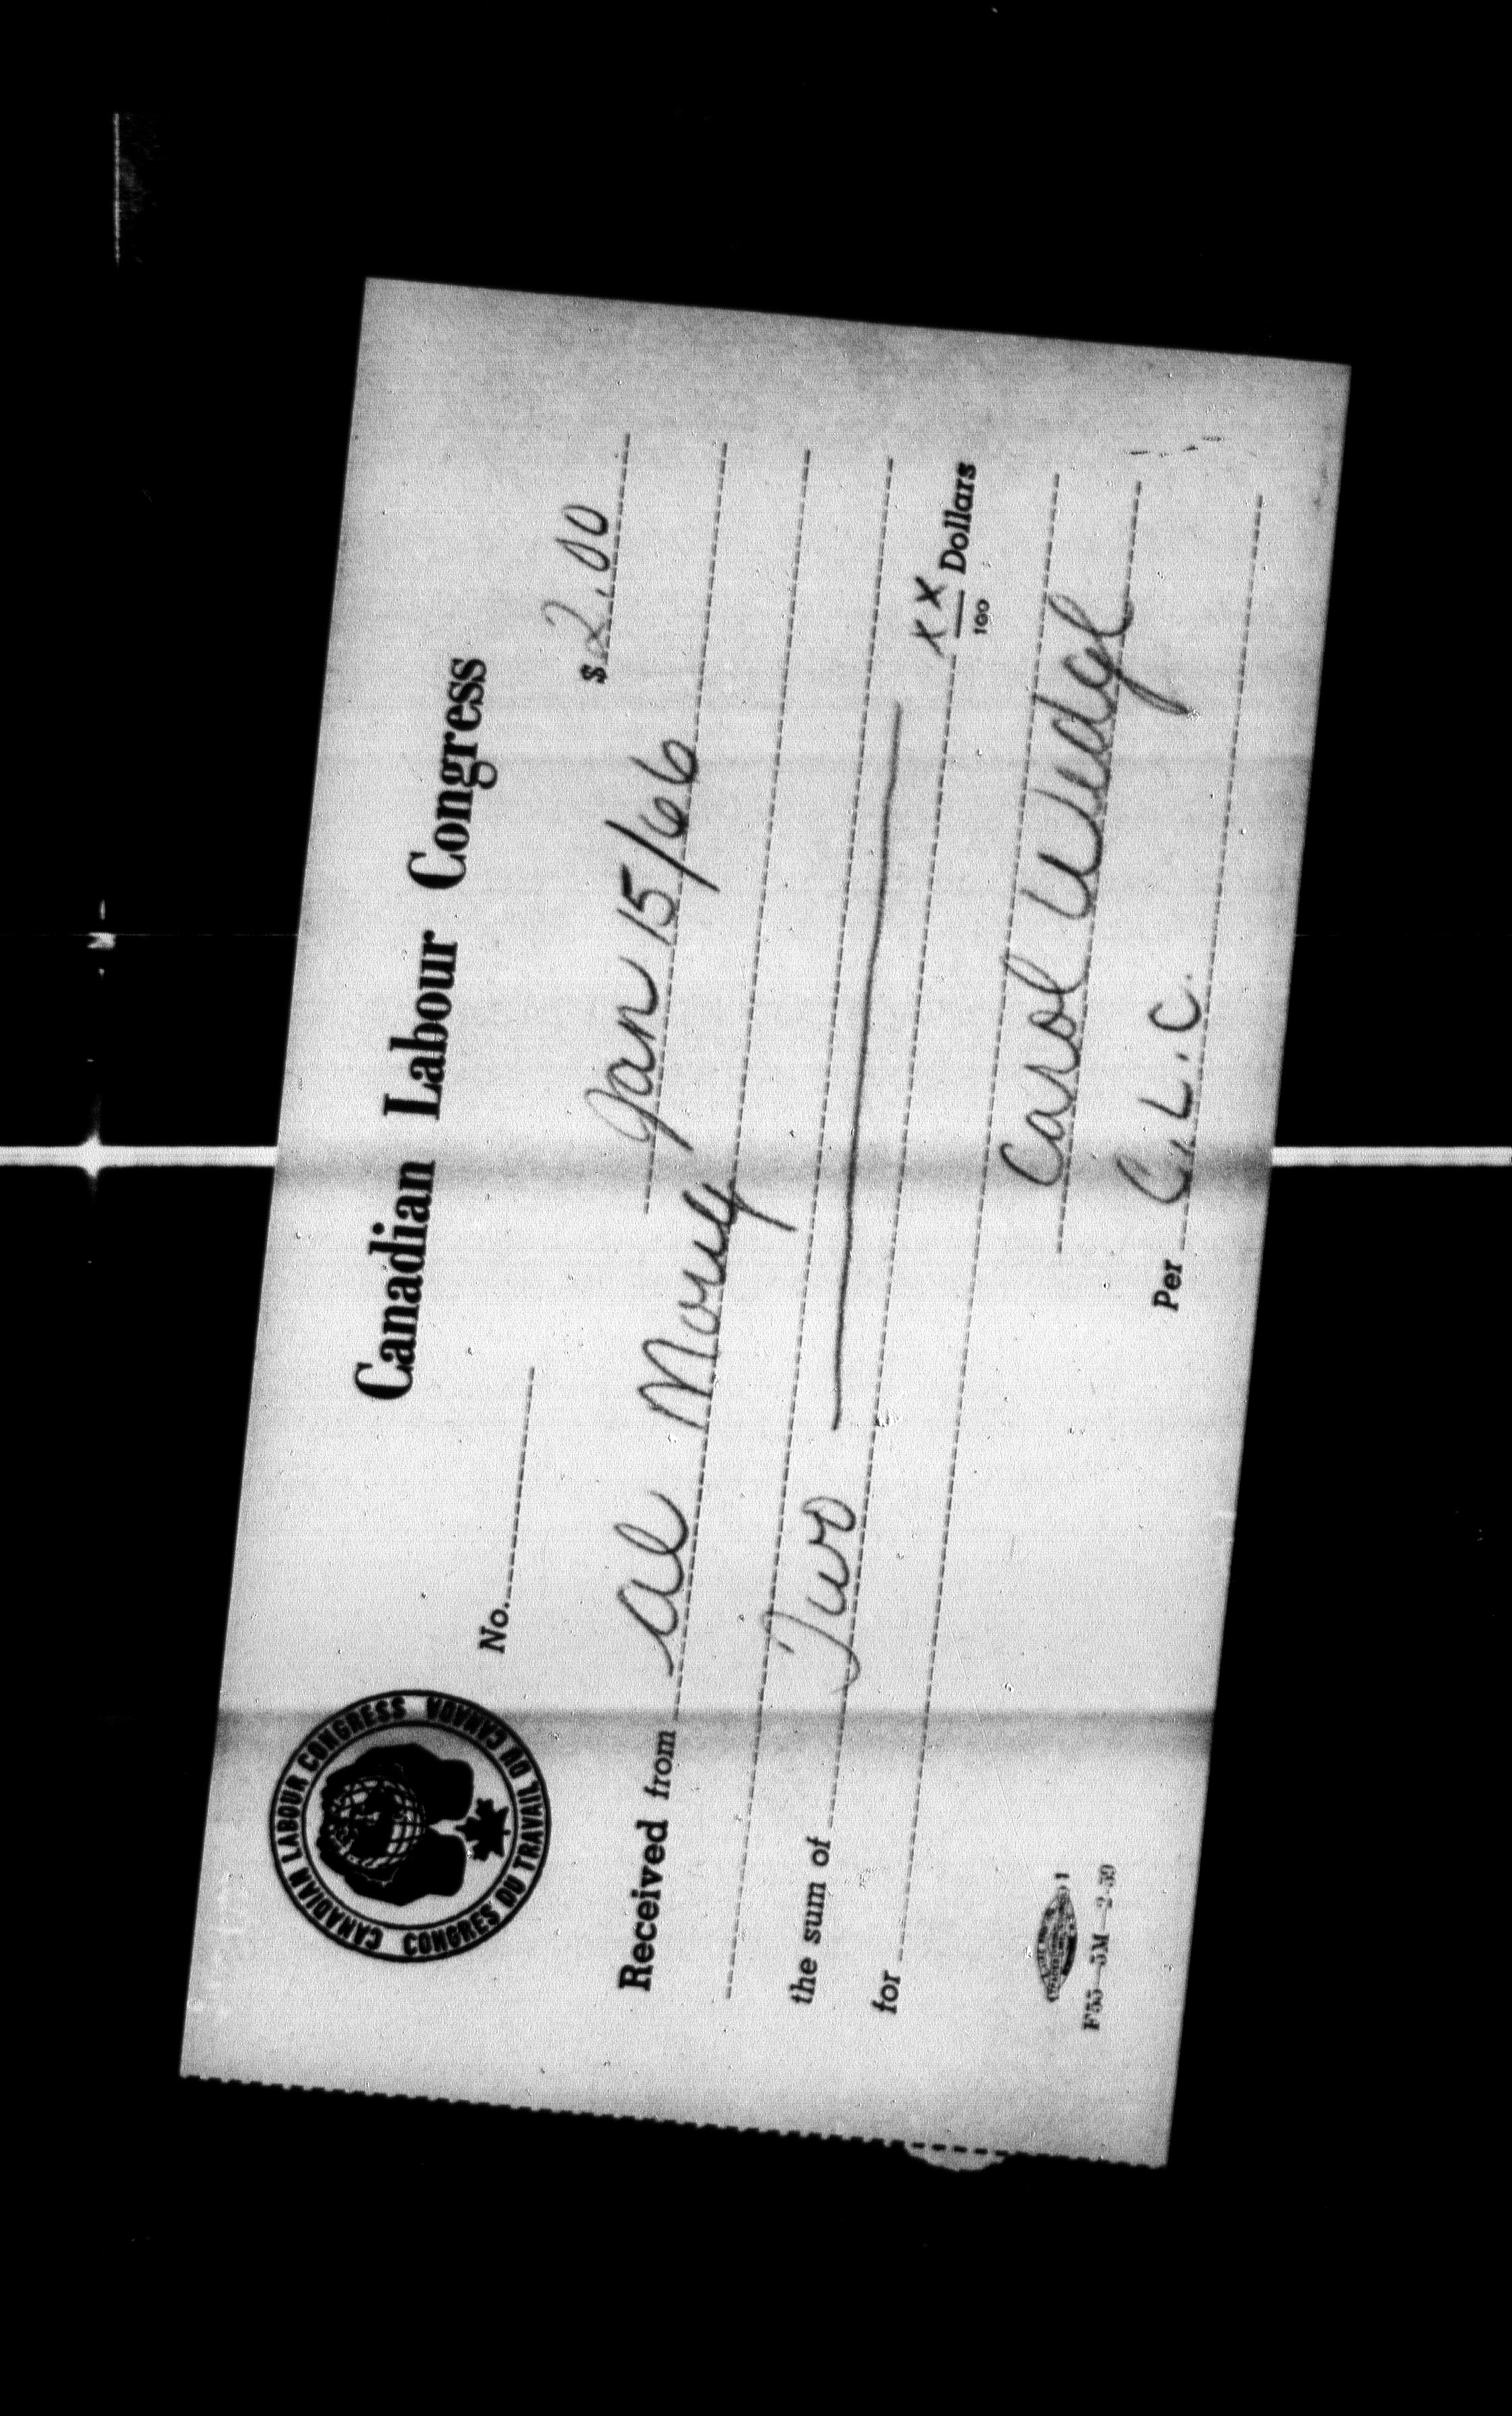 CANADIAN LABOUR CONGRESS
CONGRES DU TRAVAIL DU CANADA
Canadian Labour Congress
No.
$ 2.00
Jan 15/66
Received from Al Mory
the sum of Two xx/100 Dollars
for
Carol Wedge
Per C.L.C.
F55—5M—2-59